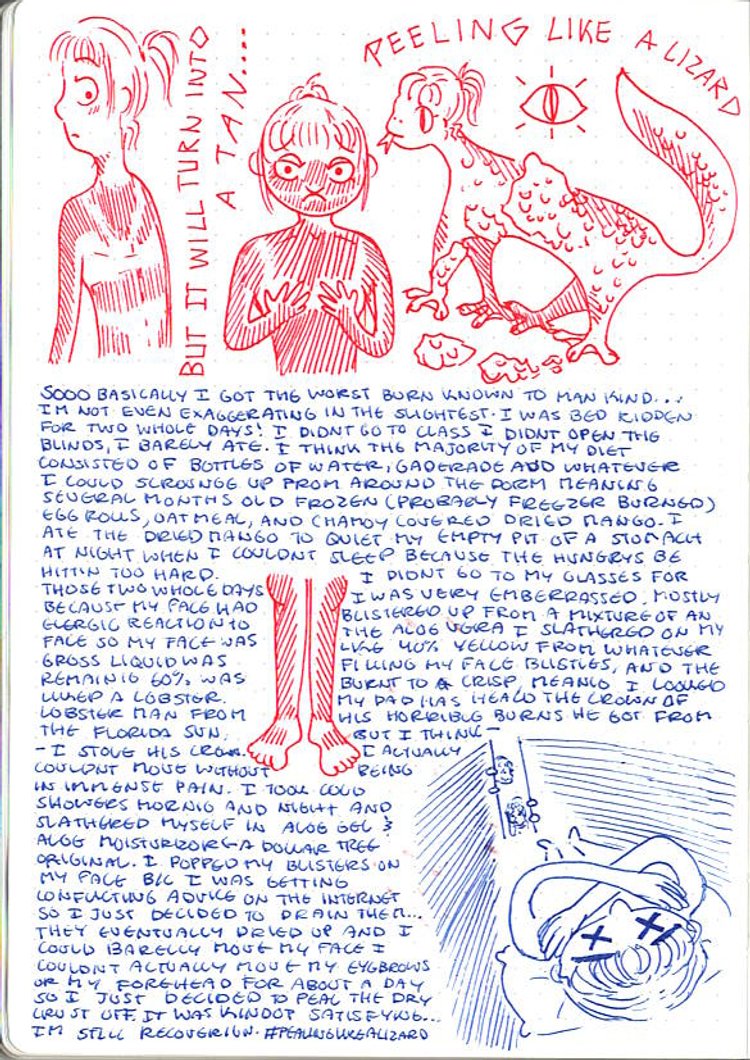 BUT IT WILL TURN INTO
A TAN....
PEELING LIKE A LIZARD
SOOO BASICALLY I GOT THE WORST BURN KNOWN TO MAN KIND...
IM NOT EVEN EXAGGERATING IN THE SLIGHTEST. I WAS BED RIDDEN
FOR TWO WHOLE DAYS! I DIDNT GO TO CLASS I DIDNT OPEN THE
BLINDS, I BARELY ATE. I THINK THE MAJORITY OF MY DIET
CONSISTED OF BOTTLES OF WATER, GADERADE AND WHATEVER
I COULD SCROUNGE UP FROM AROUND THE DORM MEANING
SEVERAL MONTHS OLD FROZEN (PROBABLY FREEZER BURNED)
EGG ROLLS, OATMEAL, AND CHAMOY COVERED DRIED MANGO. I
ATE THE DRIED MANGO TO QUIET MY EMPTY PIT OF A STOMACH
AT NIGHT WHEN I COULDNT SLEEP BECAUSE THE HUNGRYS BE
HITTIN TOO HARD. I DIDNT GO TO MY CLASSES FOR
THOSE TWO WHOLE DAYS I WAS VERY EMBERRASSED. MOSTLY
BECAUSE MY FACE HAD BLISTERED UP FROM A MIXTURE OF AN
ELERGIC REACTION TO THE ALOE VERA I SLATHERED ON MY
FACE SO MY FACE WAS LIKE 40% YELLOW FROM WHATEVER
GROSS LIQUID WAS FILLING MY FACE BLISTLES, AND THE
REMAINIG 60% WAS BURNT TO A CRISP, MEANIG I LOOKED
A LOBSTER. MY DAD HAS HEALD THE CROWN OF
LOBSTER MAN FROM HIS HORRIBLE BURNS HE GOT FROM
THE FLORIDA SUN, BUT I THINK-
-I STOLE HIS CROWN. I ACTUALLY
COULDNT MOVE WITHOUT BEING
IN IMMENSE PAIN. I TOOK COLD
SHOWERS MORNIG AND NIGHT AND
SLATHERED MYSELF IN ALOE GEL &
ALOE MOISTURIZOR-A DOLLAR TREE
ORIGINAL. I POPPED MY BLISTERS ON
MY FACE B/C I WAS GETTING
CONFLICTING ADVICE ON THE INTERNET
SO I JUST DECIDED TO DRAIN THEM...
THEY EVENTUALLY DRIED UP AND I
COULD BARELLY MOVE MY FACE I
COULDNT ACTUALLY MOVE MY EYGBROWS
OR MY FOREHEAD FOR ABOUT A DAY
SO I JUST DECIDED TO PEAL THE DRY
CRUST OFF. IT WAS KINDOT SATISFYING...
IM STILL RECOVERIUN. #PEALINGLIKEALIZARD